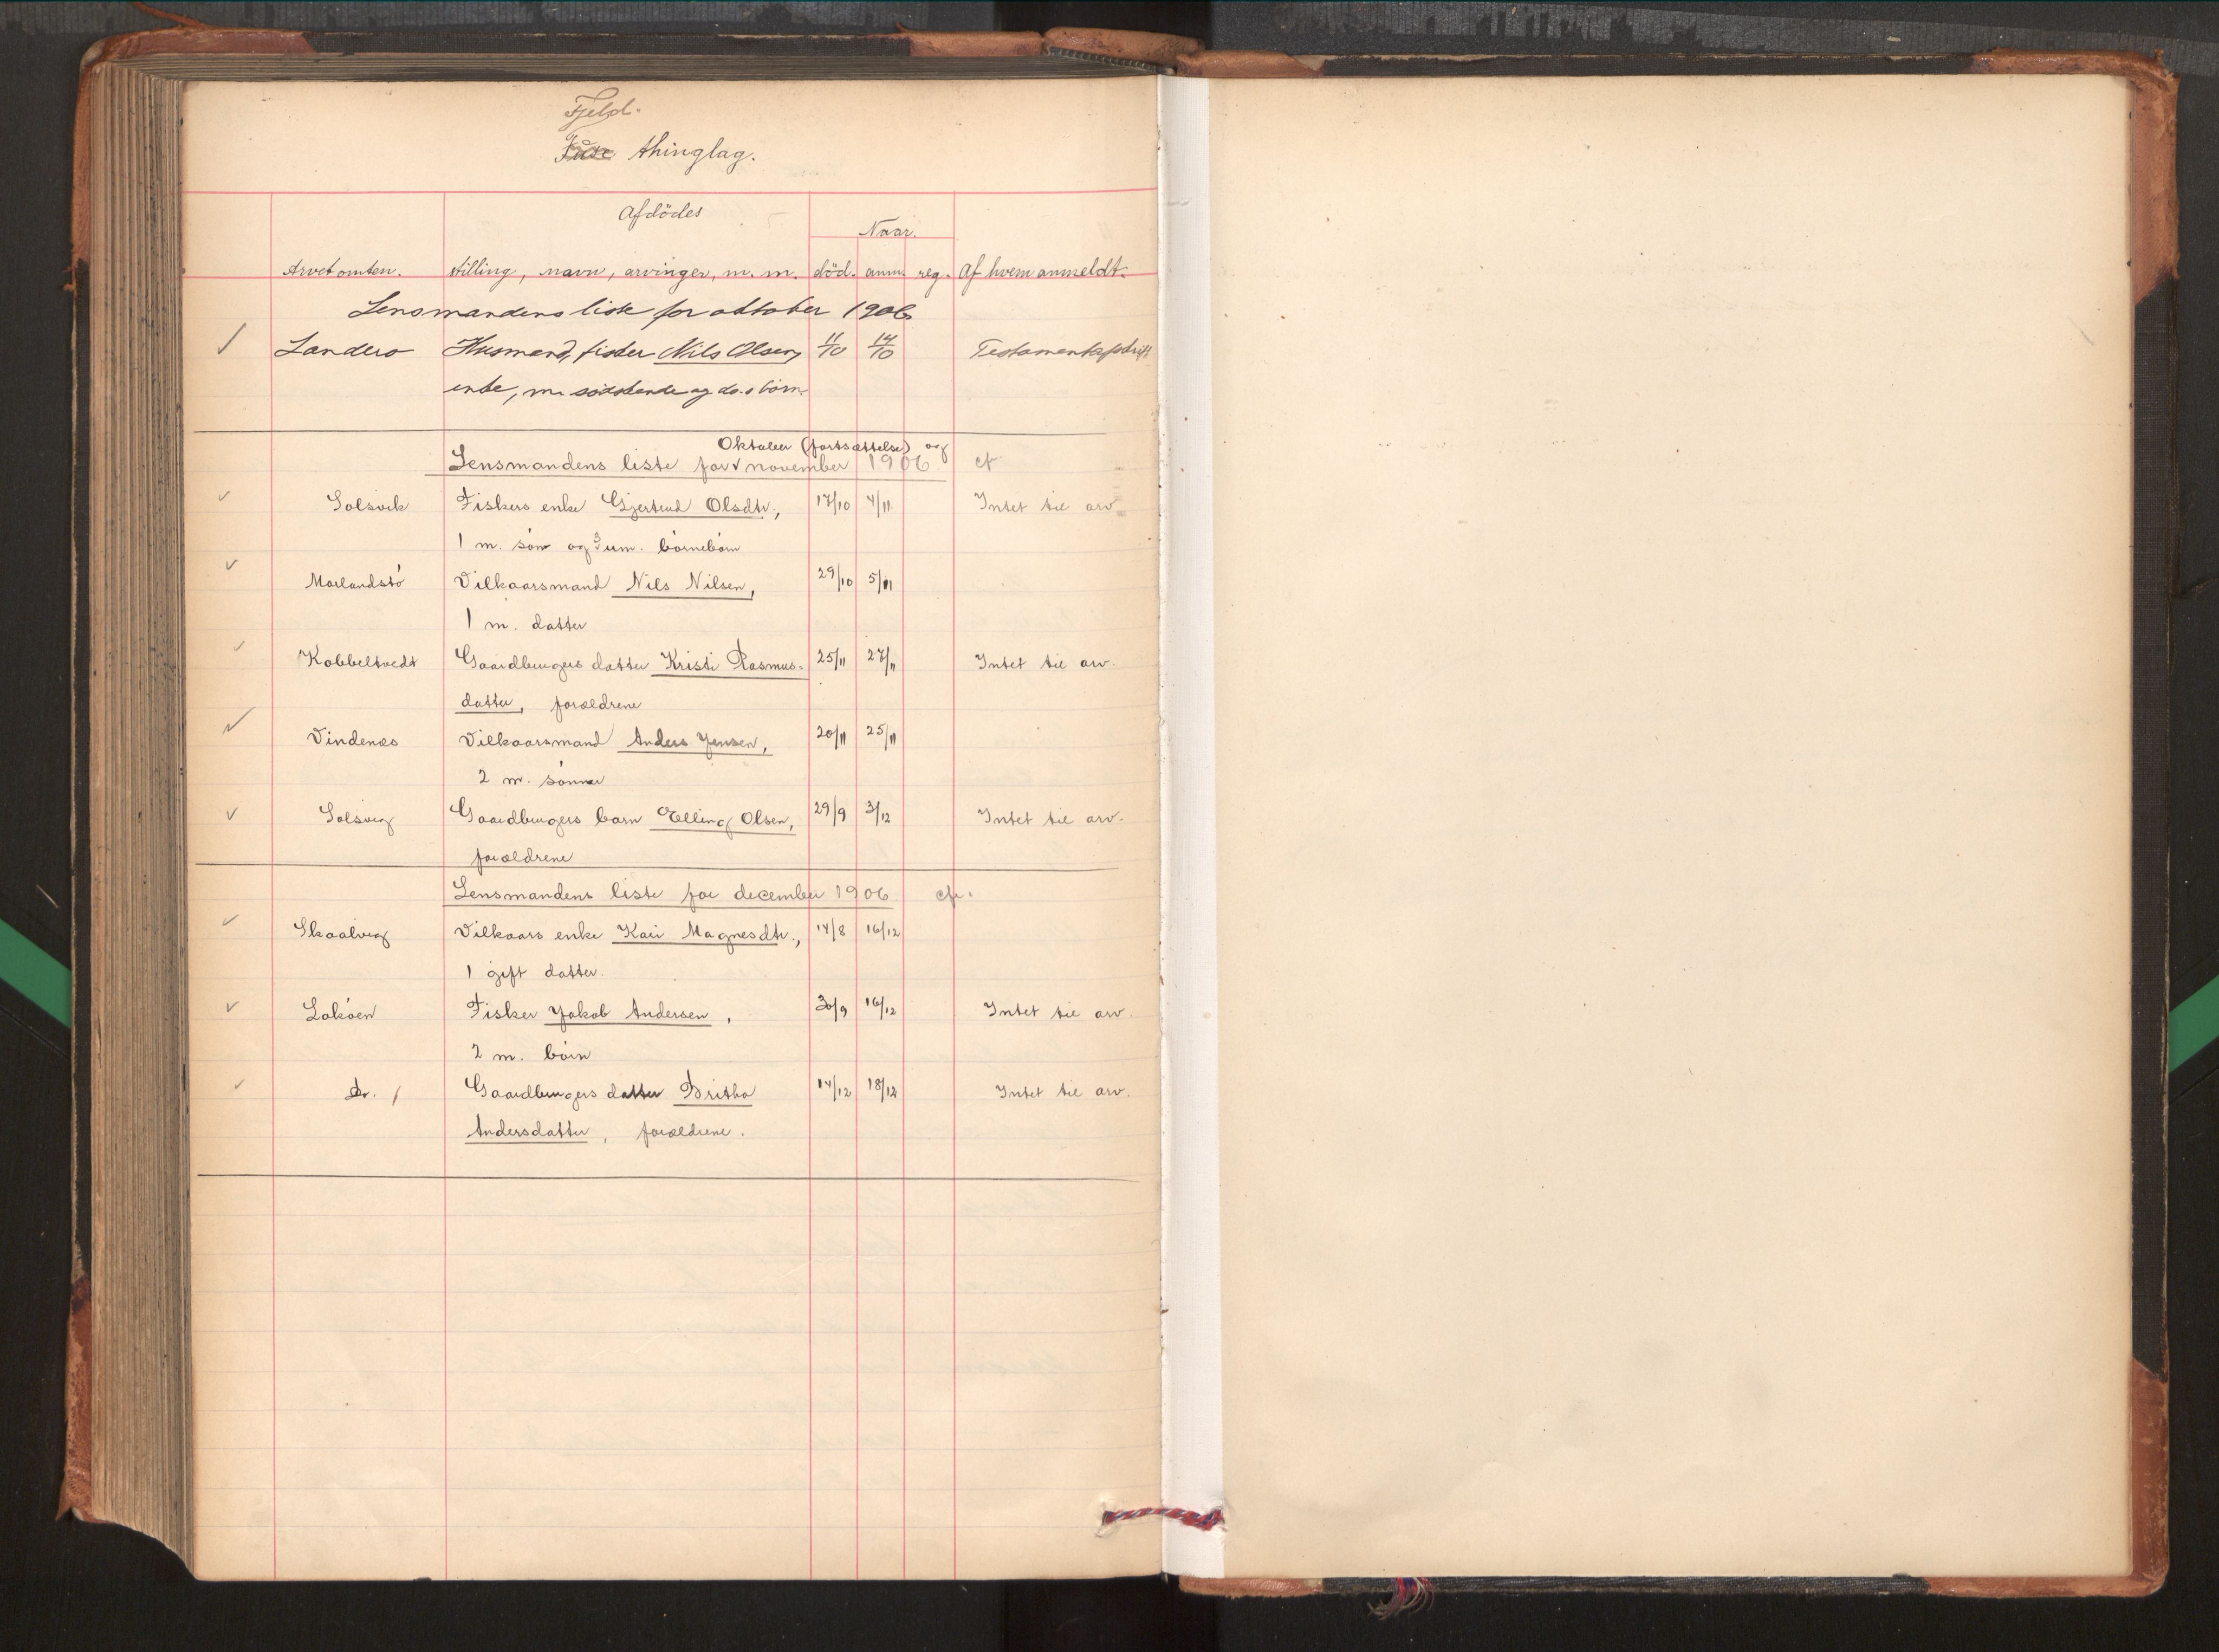 Fjeld.
Fuse thinglag.
Afdödes
Naar.
Arvetomten. stilling, navn, arvinger, m. m. död. anm. reg. Af hvem anmeldt.
Lensmandens liste for oktober 1906
Landero Husmand, fisker Nils Olsen, 11/10 14/10
enke, m. södskende og do.s börn.
Oktober (fortsættelse) og
Lensmandens liste for v november 1906.
Solsvik Fiskers enke Gjertrud Olsdtr., 17/10 4/11 Intet til arv
1 m. sön og 3 um. börnebörn
Morlandstö Vilkaarsmand Nils Nilsen, 29/10 5/11
1 m. datter
Kobbeltvedt Gaardbrugers datter Kristi Rasmus- 25/11 27/11 Intet til arv.
datter, forældrene
Vindenes Vilkaarsmand Anders Jensen, 20/11 25/11
2 m. sönner
Solsvig Gaardbrugers barn Elling Olsen, 29/9 3/12 Intet til arv.
forældrene
Lensmandens liste for december 1906
Skaalvig Vilkaars enke Kari Magnesdtr., 14/8 16/12
1 gift datter.
Loköen Fisker Jakob Andersen, 30/9 16/12 Intet til arv.
2 m. börn
do. Gaardbrugers datter Britha 14/12 18/12 Intet til arv.
Andersdatter, forældrene.